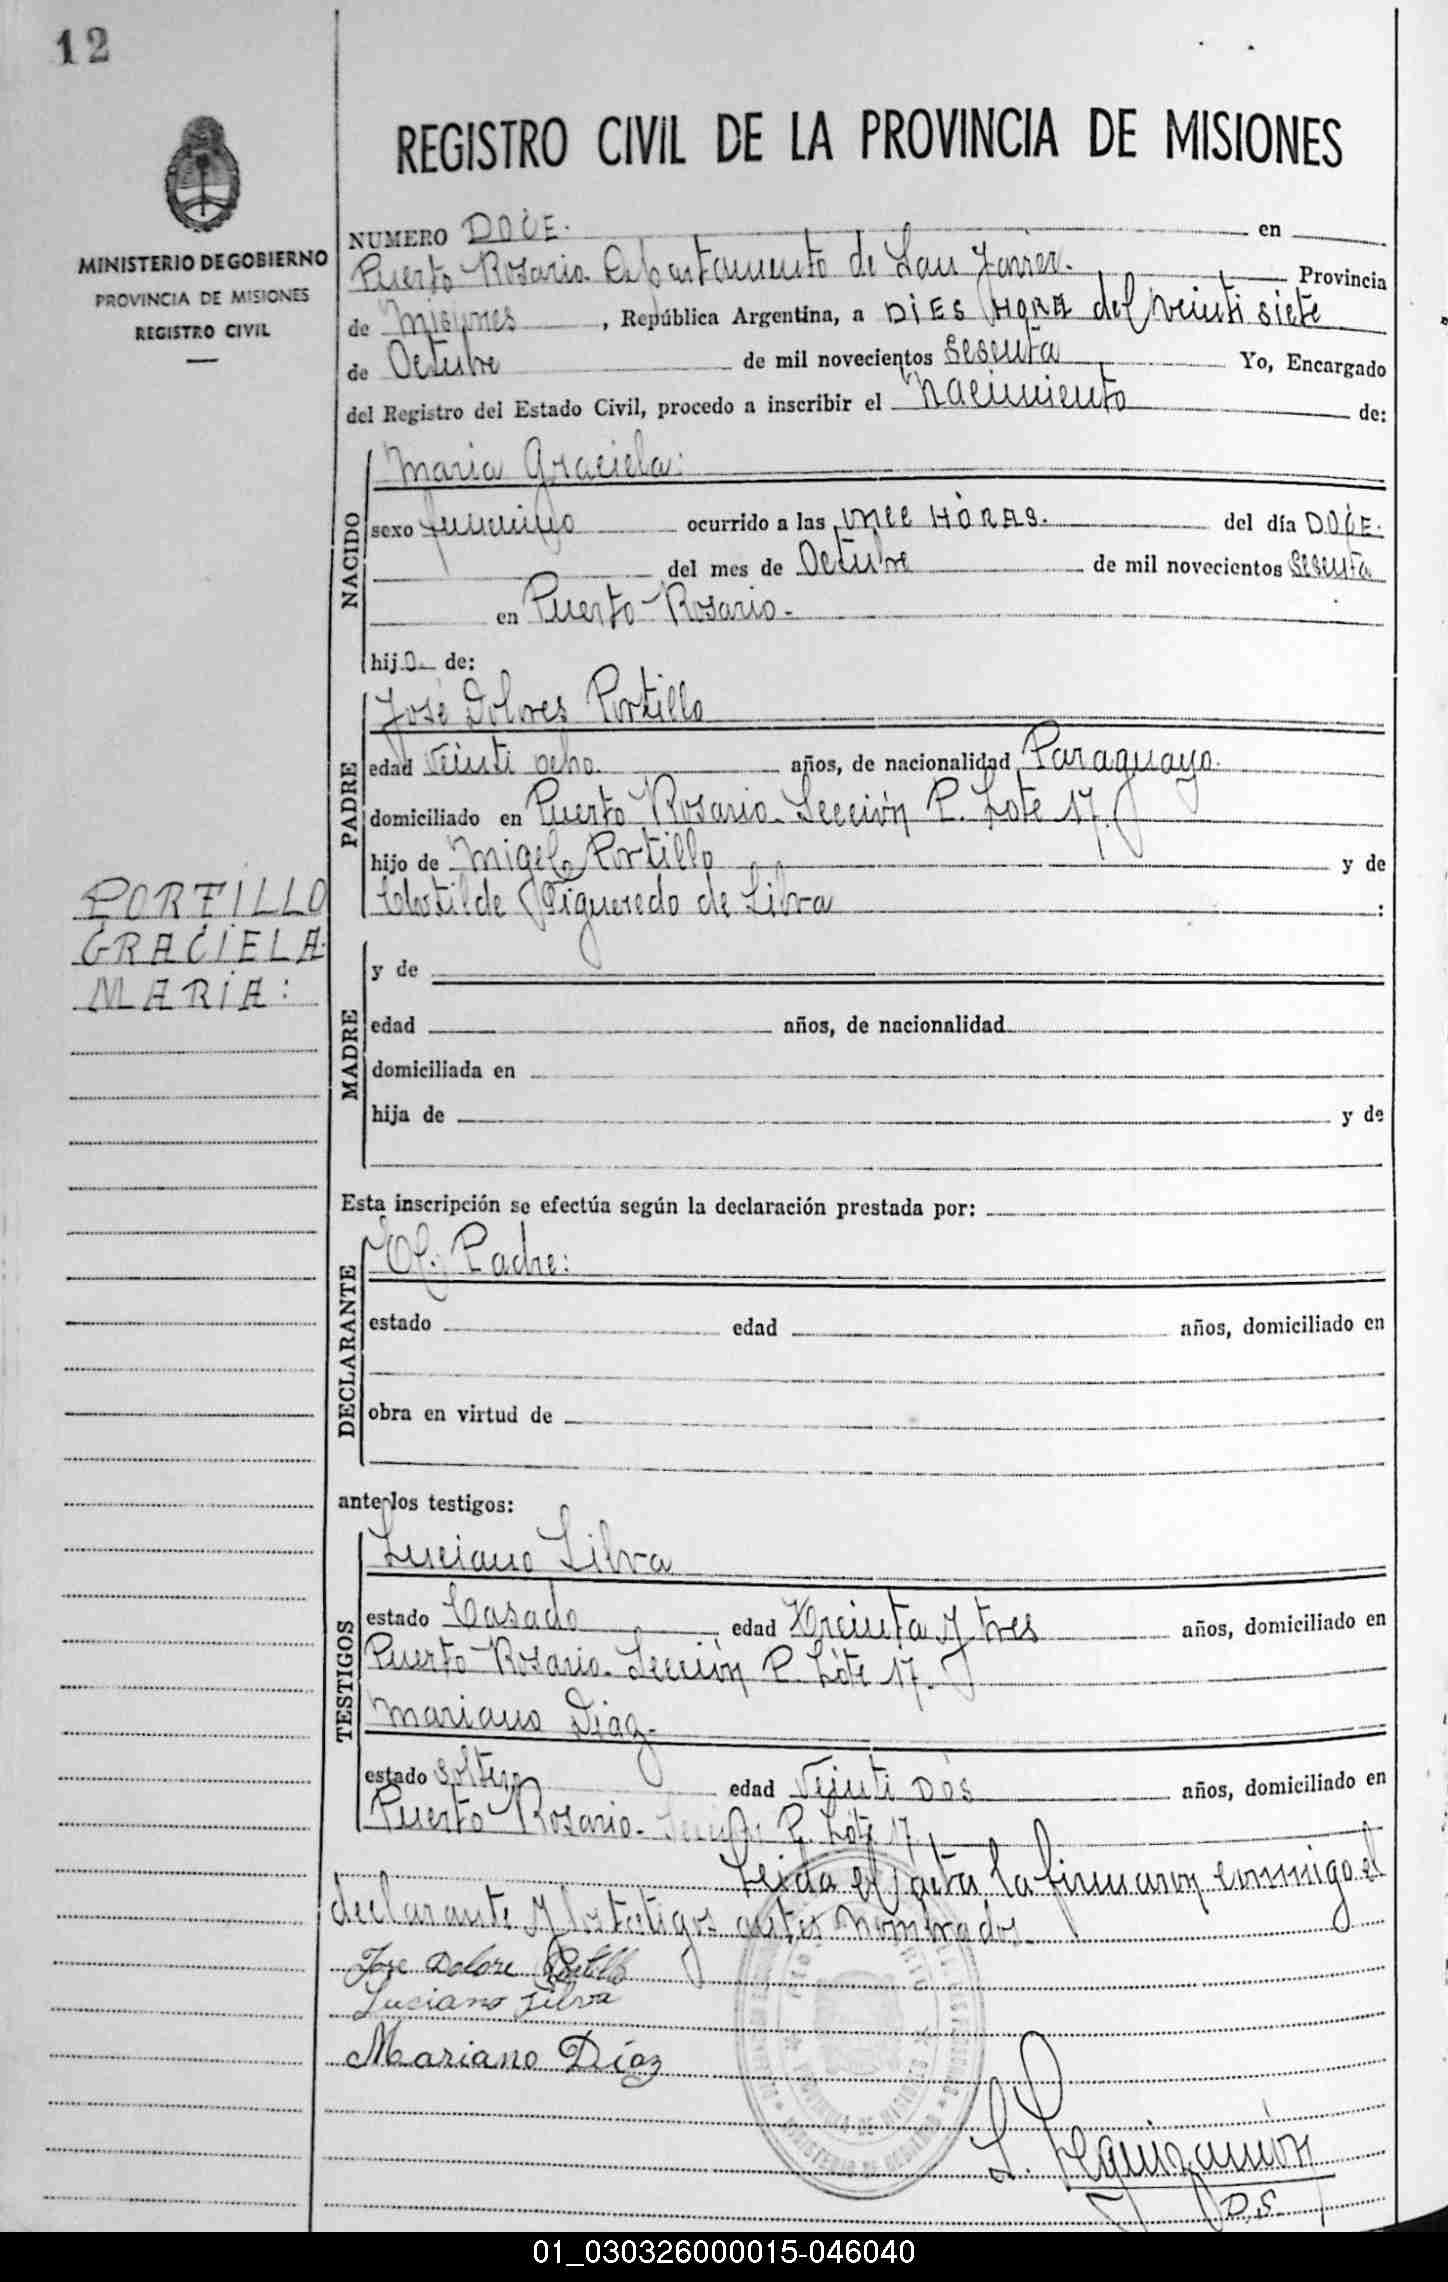 12
REGISTRO CIVIL DE LA PROVINCIA DE MISIONES
MINISTERIO DE GOBIERNO
PROVINCIA DE MISIONES
REGISTRO CIVIL
NUMERO DOCE. en
Puerto Rosario. Departamento de San Javier. Provincia
de Misiones, República Argentina, a DIES HORA del veinti siete
de Octubre de mil novecientos sesenta Yo, Encargado
del Registro del Estado Civil, procedo a inscribir el Nacimiento de:
NACIDO
Maria Graciela:
sexo femenino ocurrido a las once HORAS. del día DOCE.
del mes de Octubre de mil novecientos sesenta
en Puerto Rosario.
hija de:
PADRE
José Dolores Portillo
edad veinti ocho. años, de nacionalidad Paraguayo.
domiciliado en Puerto Rosario. Sección P. Lote 17.
hijo de Migel Portillo y de
Clotilde Figueredo de Silva :
PORTILLO
GRACIELA
MARIA:
MADRE
y de
edad años, de nacionalidad
domiciliada en
hija de y de
Esta inscripción se efectúa según la declaración prestada por:
DECLARANTE
El Padre:
estado edad años, domiciliado en
obra en virtud de
ante los testigos:
TESTIGOS
Luciano Silva
estado Casado edad treinta y tres años, domiciliado en
Puerto Rosario. Sección P. Lote 17.
Mariano Diaz.
estado soltero edad veinti dos años, domiciliado en
Puerto Rosario. Sección P. Lote 17.
Leida el acta la firmaron conmigo el
declarante y los testigos antes nombrados.
Jose Dolore Portillo
Luciano Silva
Mariano Díaz
PROVINCIA DE MISIONES
MINISTERIO DE GOBIERNO
L. Leguizamón
D.S.
01_030326000015-046040